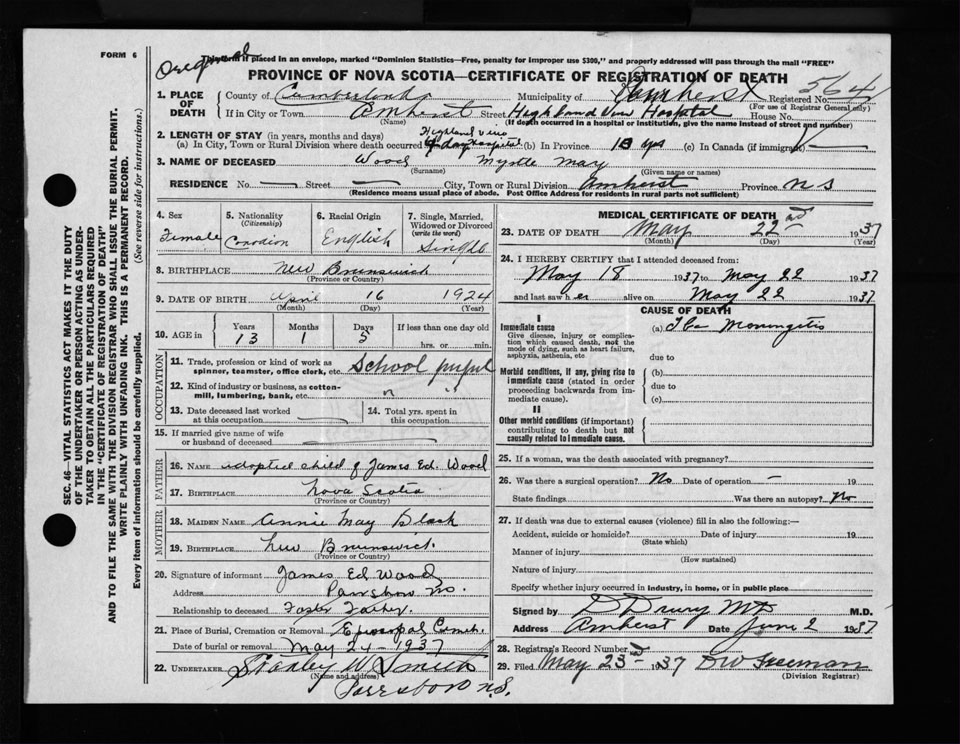 FORM 6
Original
form if placed in an envelope, marked "Dominion Statistics—Free, penalty for improper use $300," and properly addressed will pass through the mail "FREE"
PROVINCE OF NOVA SCOTIA—CERTIFICATE OF REGISTRATION OF DEATH
1. PLACE OF DEATH
County of Cumberland Municipality of Amherst Registered No. 564
(For use of Registrar General only)
If in City or Town Amherst Street Highland View Hospital House No.
(Name) (If death occurred in a hospital or institution, give the name instead of street and number)
2. LENGTH OF STAY (in years, months and days) Highland View
(a) In City, Town or Rural Division where death occurred 4 day Hospital (b) In Province 13 yrs (c) In Canada (if immigrant) —
3. NAME OF DECEASED Wood Myrtle May
(Surname) (Given name or names)
RESIDENCE No. — Street — City, Town or Rural Division Amherst Province N S
(Residence means usual place of abode. Post Office Address for residents in rural parts not sufficient)
4. Sex
Female
5. Nationality
(Citizenship)
Canadian
6. Racial Origin
English
7. Single, Married, Widowed or Divorced
(write the word)
Single
8. BIRTHPLACE New Brunswick
(Province or Country)
9. DATE OF BIRTH April 16 1924
(Month) (Day) (Year)
10. AGE in
Years Months Days If less than one day old
13 1 5 hrs. or min.
OCCUPATION
11. Trade, profession or kind of work as
spinner, teamster, office clerk, etc. School pupil
12. Kind of industry or business, as cotton-
mill, lumbering, bank, etc. "
13. Date deceased last worked
at this occupation
14. Total yrs. spent in
this occupation
15. If married give name of wife
or husband of deceased
FATHER
16. NAME adopted child of James Ed. Wood
17. BIRTHPLACE Nova Scotia
(Province or Country)
MOTHER
18. MAIDEN NAME Annie May Black
19. BIRTHPLACE New Brunswick.
(Province or Country)
20. Signature of informant James Ed Wood
Address
Relationship to deceased Foster Father.
21. Place of Burial, Cremation or Removal Episcopal Cemet.
Date of burial or removal May 24 - 1937
22. UNDERTAKER Stanley W Smith
(Name and address)
Parrsboro N.S.
MEDICAL CERTIFICATE OF DEATH
23. DATE OF DEATH May 22nd 1937
(Month) (Day) (Year)
24. I HEREBY CERTIFY that I attended deceased from:
May 18 1937 to May 22 1937
and last saw her alive on May 22 1937
CAUSE OF DEATH
I
Immediate cause
Give disease, injury or complication which caused death, not the mode of dying, such as heart failure, asphyxia, asthenia, etc
(a) Tbc Meningitis
due to
Morbid conditions, if any, giving rise to immediate cause (stated in order proceeding backwards from immediate cause).
(b)
due to
(c)
II
Other morbid conditions (if important) contributing to death but not causally related to immediate cause.
25. If a woman, was the death associated with pregnancy?
26. Was there a surgical operation? No Date of operation — 19
State findings Was there an autopsy? No
27. If death was due to external causes (violence) fill in also the following:—
Accident, suicide or homicide? Date of injury 19
(State which)
Manner of injury
(How sustained)
Nature of injury
Specify whether injury occurred in industry, in home, or in public place
Signed by D Drury MD M.D.
Address Amherst Date June 2 1937
28. Registrar's Record Number
29. Filed May 23rd 1937 DW Freeman
(Division Registrar)
SEC. 46—VITAL STATISTICS ACT MAKES IT THE DUTY
OF THE UNDERTAKER OR PERSON ACTING AS UNDER-
TAKER TO OBTAIN ALL THE PARTICULARS REQUIRED
IN THE "CERTIFICATE OF REGISTRATION OF DEATH"
AND TO FILE THE SAME WITH THE DIVISION REGISTRAR WHO SHALL ISSUE THE BURIAL PERMIT.
WRITE PLAINLY WITH UNFADING INK. THIS IS A PERMANENT RECORD.
Every item of information should be carefully supplied. (See reverse side for instructions.)